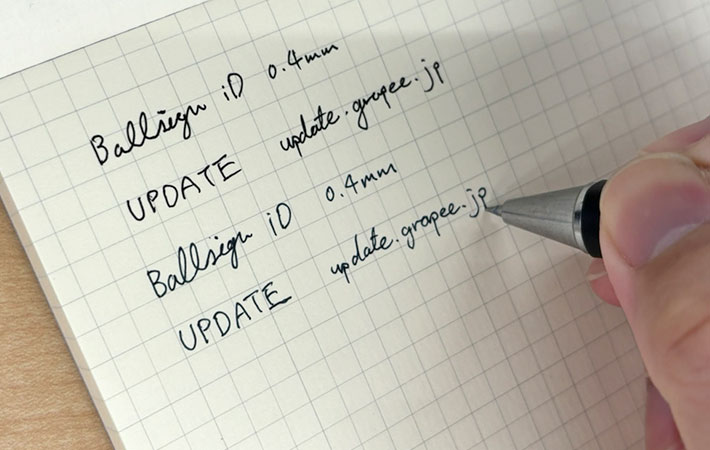 Ballsign iD 0.4mm
UPDATE update.grapee.jp
Ballsign iD 0.4mm
UPDATE update.grapee.jp